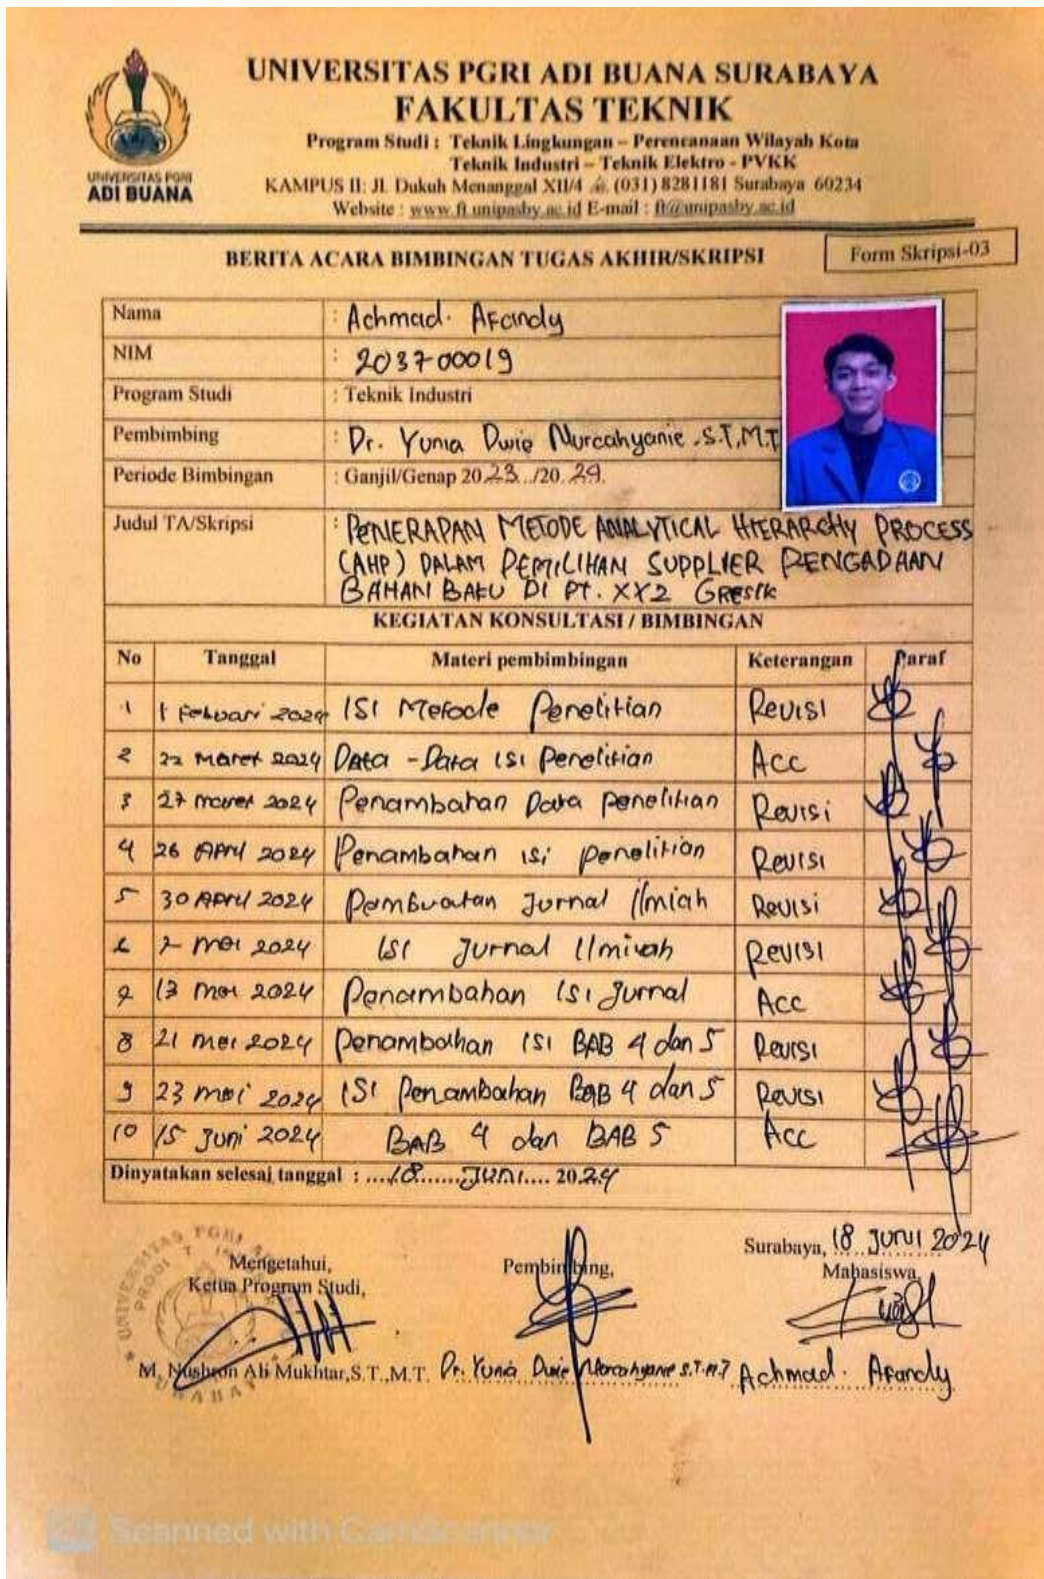 UNIVERSITAS PGRI ADI BUANA SURABAYA
FAKULTAS TEKNIK
Program Studi : Teknik Lingkungan – Perencanaan Wilayah Kota
Teknik Industri – Teknik Elektro - PVKK
KAMPUS II: Jl. Dukuh Menanggal XII/4 (031) 8281181 Surabaya 60234
Website : www.ft.unipasby.ac.id E-mail : ft@unipasby.ac.id
UNIVERSITAS PGRI
ADI BUANA
BERITA ACARA BIMBINGAN TUGAS AKHIR/SKRIPSI
Form Skripsi-03
Nama : Achmad. Afandy
NIM : 203700019
Program Studi : Teknik Industri
Pembimbing : Dr. Yunia Dwie Nurcahyanie .S.T,M.T
Periode Bimbingan : Ganjil/Genap 20.23../20.24.
Judul TA/Skripsi : PENERAPAN METODE ANALYTICAL HIERARCHY PROCESS
(AHP) DALAM PEMILIHAN SUPPLIER PENGADAAN
BAHAN BAKU DI PT. XYZ GRESIK
KEGIATAN KONSULTASI / BIMBINGAN
No Tanggal Materi pembimbingan Keterangan Paraf
1 1 Februari 2024 ISI Metode Penelitian Revisi
2 22 Maret 2024 Data - Data isi penelitian Acc
3 27 maret 2024 Penambahan Data penelitian Revisi
4 26 April 2024 Penambahan isi penelitian Revisi
5 30 April 2024 Pembuatan Jurnal Ilmiah Revisi
6 7 mei 2024 isi Jurnal Ilmiyah Revisi
7 13 mei 2024 Penambahan isi Jurnal Acc
8 21 mei 2024 Penambahan isi BAB 4 dan 5 Revisi
9 23 mei 2024 ISI Penambahan BAB 4 dan 5 Revisi
10 15 Juni 2024 BAB 4 dan BAB 5 Acc
Dinyatakan selesai tanggal : ....18.......Juni.... 20.24
Surabaya, 18 Juni 2024
Mengetahui,
Ketua Program Studi,
Pembimbing,
Mahasiswa,
M. Nushron Ali Mukhtar,S.T.,M.T.
Dr. Yunia Dwie Nurcahyanie S.T.M.T
Achmad. Afandy
Scanned with CamScanner